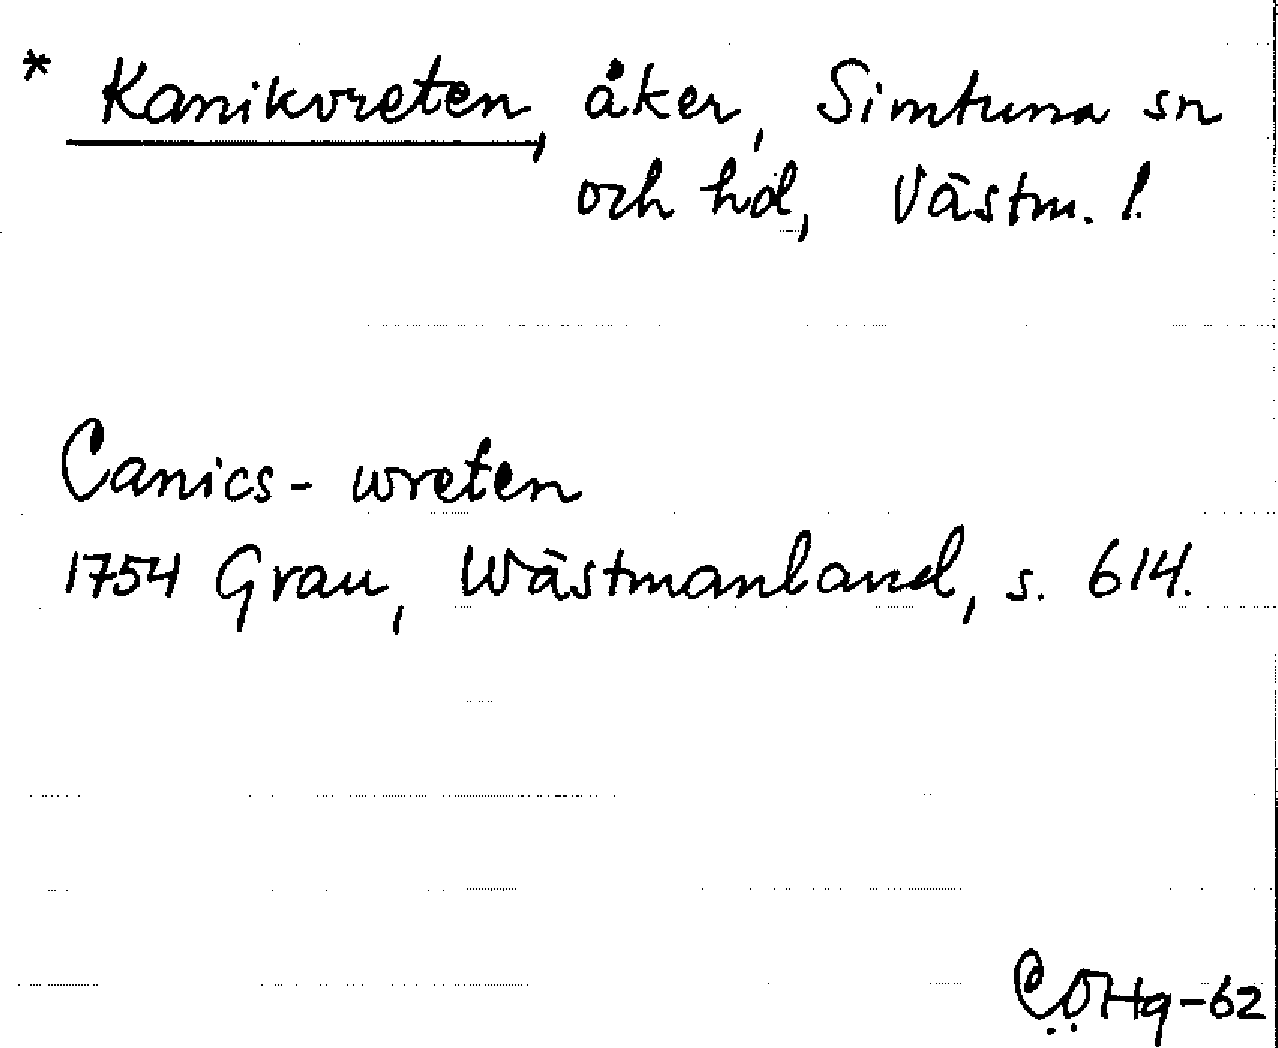 * Kanikvreten, åker, Simtuna sn
och hd, Västm. l.
Canics - wreten
1754 Grau, Wästmanland, s. 614.
CÖHg-62